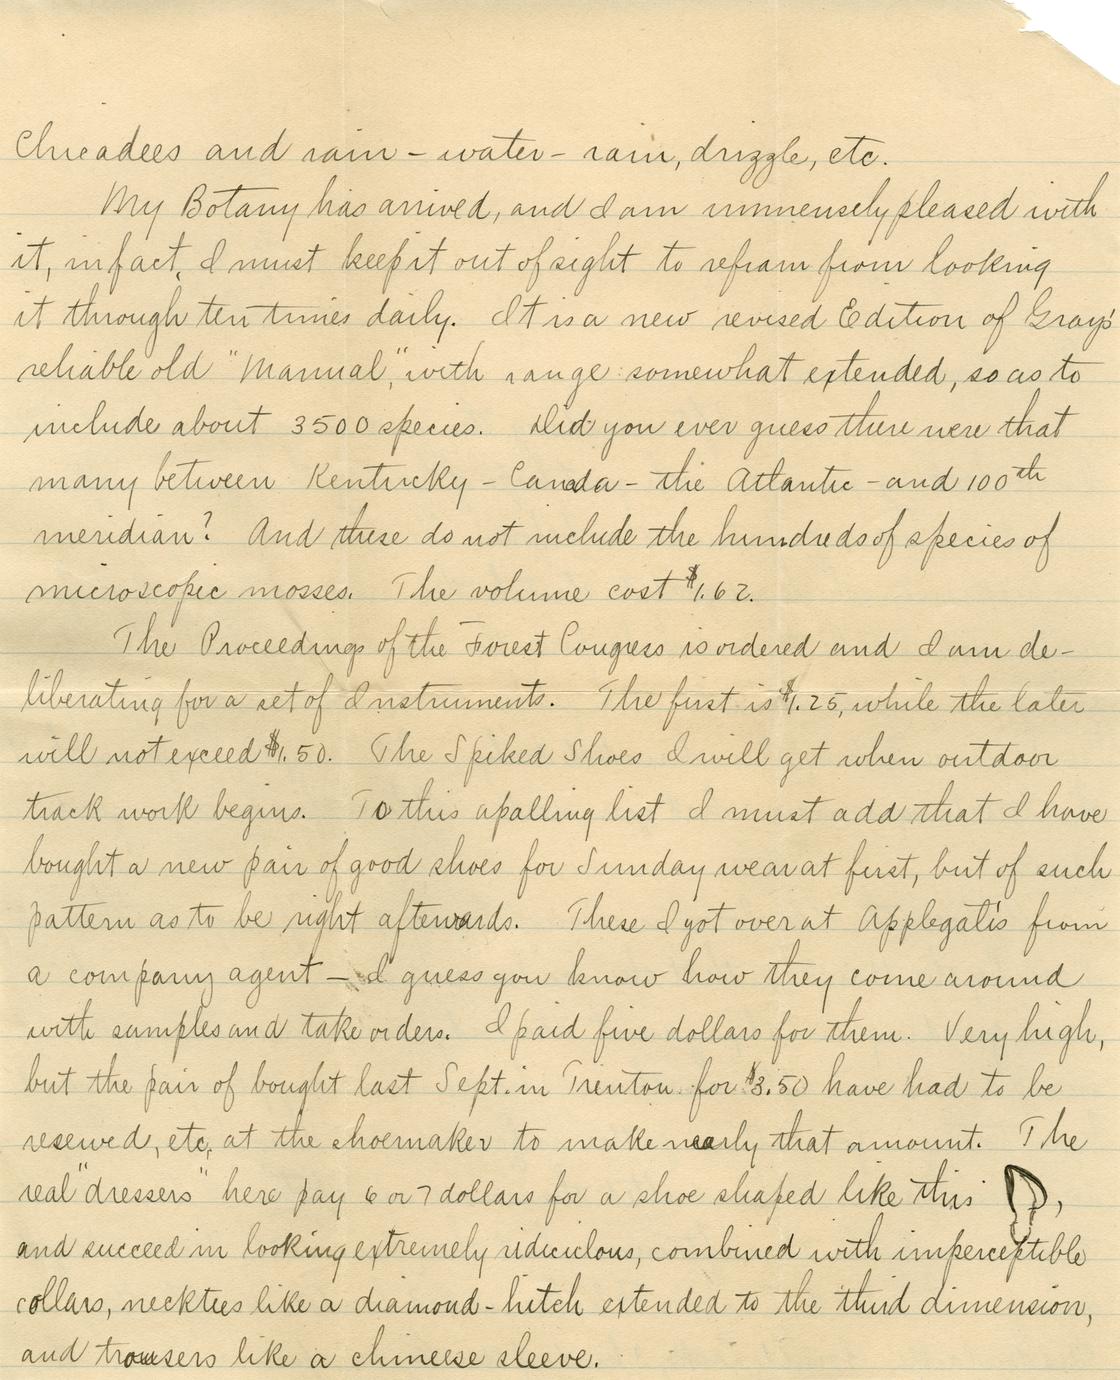 Chicadees and rain - water - rain, drizzle, etc.
My Botany has arrived, and I am immensely pleased with
it, in fact, I must keep it out of sight to refrain from looking
it through ten times daily. It is a new revised Edition of Gray's
reliable old "Manual", with range somewhat extended, so as to
include about 3500 species. Did you ever guess there were that
many between Kentucky - Canada - the Atlantic - and 100th
meridian? And these do not include the hundreds of species of
microscopic mosses. The volume cost $1.62.
The Proceedings of the Forest Congress is ordered and I am de-
liberating for a set of Instruments. The first is $1.25, while the later
will not exceed $1.50. The Spiked Shoes I will get when outdoor
track work begins. To this apalling list I must add that I have
bought a new pair of good shoes for Sunday wear at first, but of such
pattern as to be right afterwards. These I got over at Applegate's from
a company agent — I guess you know how they come around
with samples and take orders. I paid five dollars for them. Very high,
but the pair of bought last Sept. in Trenton for $3.50 have had to be
resewed, etc. at the shoemaker to make nearly that amount. The
real "dressers" here pay 6 or 7 dollars for a shoe shaped like this ,
and succeed in looking extremely ridiculous, combined with imperceptible
collars, neckties like a diamond-hitch extended to the third dimension,
and trousers like a chineese sleeve.